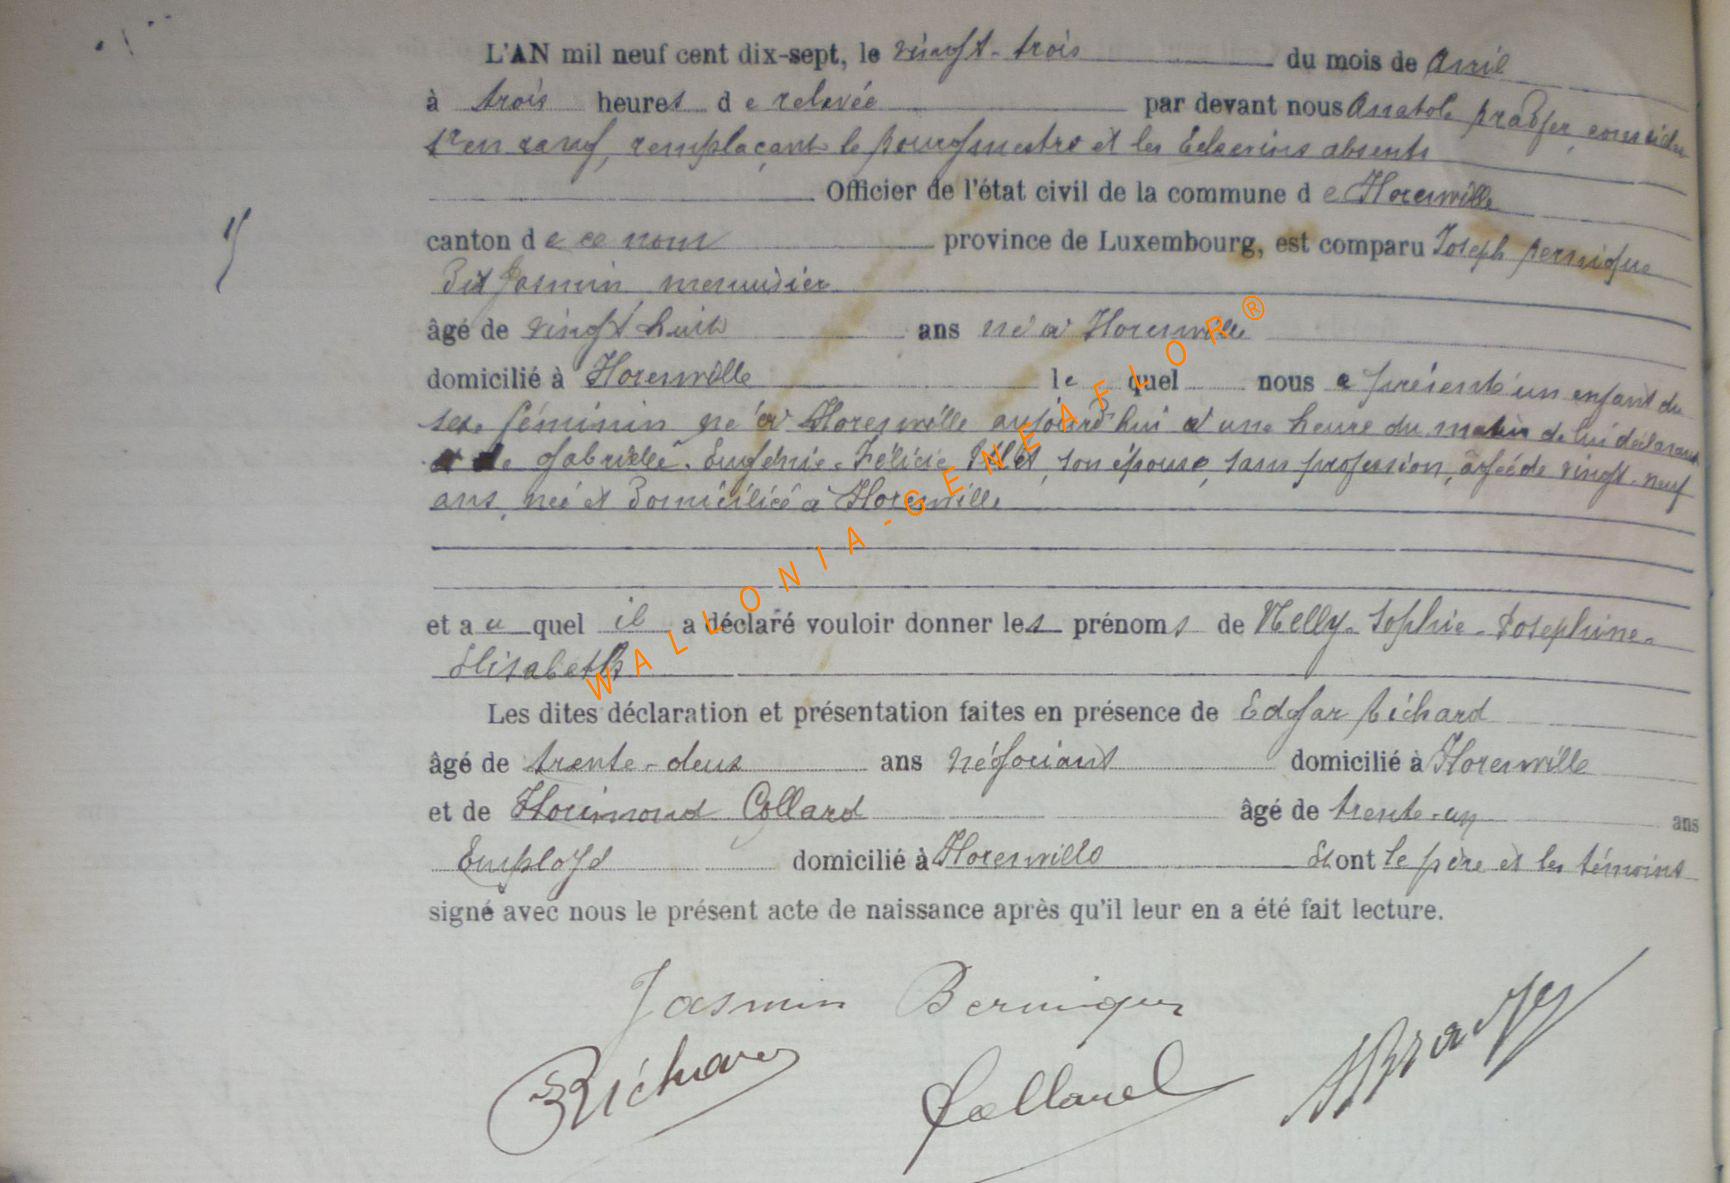 L'AN mil neuf cent dix-sept, le vingt-trois du mois de Avril
à trois heures de relevée par devant nous Anatole Pradfer, conseiller
1er en rang, remplaçant le bourgmestre et les Echevins absents
Officier de l'état civil de la commune de Florenville
canton de ce nom province de Luxembourg, est comparu Joseph Bernique
Dit Jasmin, menuisier
âgé de vingt huit ans né à Florenville
domicilié à Florenville lequel nous a présenté un enfant du
sexe féminin né à Florenville aujourd'hui à une heure du matin de lui déclarant
de Gabrielle-Eugénie-Félicie son épouse, sans profession, âgée de vingt-neuf
ans, née et domiciliée à Florenville
5
et auquel il a déclaré vouloir donner les prénoms de Nelly-Sophie-Joséphine-
Elisabeth
Les dites déclaration et présentation faites en présence de Edgar Richard
âgé de trente-deux ans négociant domicilié à Florenville
et de Florimond Collard âgé de trente-un ans
Employé domicilié à Florenville Et ont le père et les témoins
signé avec nous le présent acte de naissance après qu'il leur en a été fait lecture.
Jasmin Bernique
ERichard Collard
WALLONIA-GENEAFLOR®